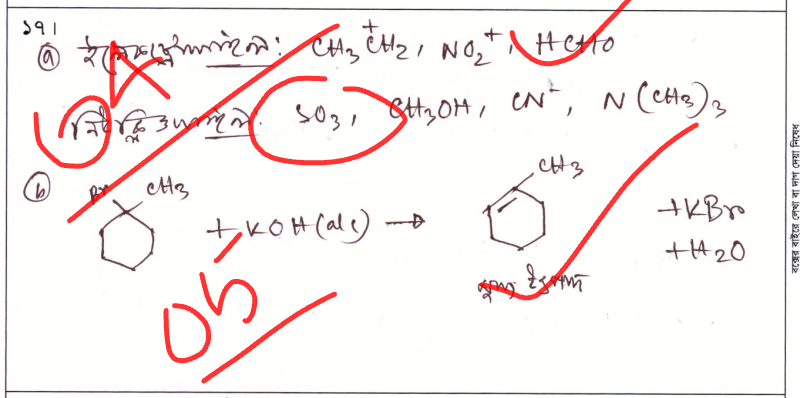 ১৭।
ⓐ ইলেকট্রোফাইল: CH₃C⁺H₂, NO₂⁺, HCHO
নিউক্লিওফাইল: SO₃, CH₃OH, CN⁻, N(CH₃)₃
ⓑ Br CH₃ + KOH(alc) → CH₃ + KBr
+ H₂O
মুখ্য উৎপাদ
05
বক্সের বাইরে লেখা বা দাগ দেয়া নিষেধ